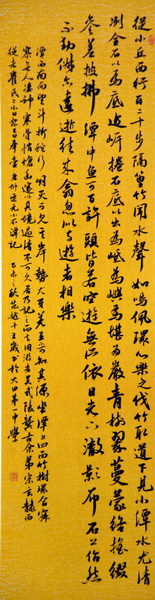 從小丘西行百二十步隔篁竹聞水聲如鳴佩環心樂之伐竹取道下見小潭水尤清
冽全石以為底近岸捲石底以出為坻為嶼為嵁為巖青樹翠蔓蒙絡搖綴
參差披拂潭中魚可百許頭皆若空遊無所依日光下澈影布石上佁然
不動俶爾遠逝往來翕忽似與遊者相樂
潭西南而望斗折蛇行明滅可見其岸勢犬牙差互不可知其源坐潭上四面竹樹環合寂
寥無人淒神寒骨悄愴幽邃以其境過清不可久居乃記之而去同遊者吳武陵龔古余弟宗玄隸而
從者崔氏二小生曰恕己曰奉壹 唐柳宗元小石潭記 之秋 於大田第一中學